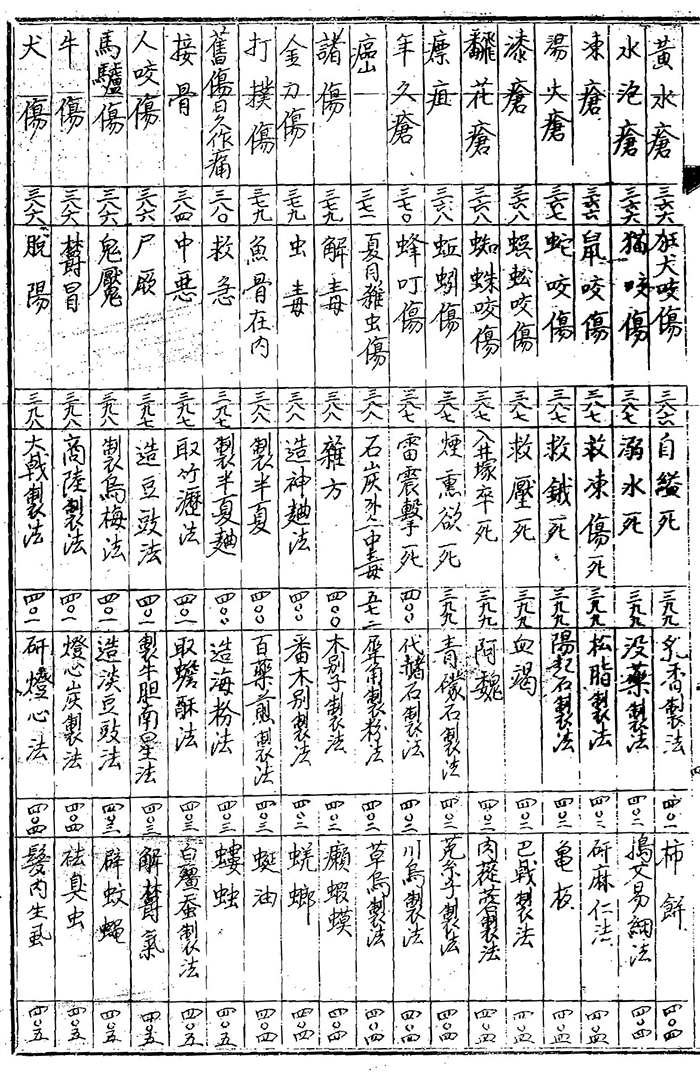 黃水瘡 三六六
水泡瘡 三六六
凍瘡 三六六
湯火瘡 三六七
漆瘡 三六八
翻花瘡 三六八
瘭疽 三六八
年久瘡 三七〇
三七二
諸傷 三七九
金刀傷 三七九
打撲傷 三七九
舊傷日久作痛 三八〇
接骨 三八四
人咬傷 三八六
馬驢傷 三八六
牛傷 三八六
犬傷 三八六
狂犬咬傷 三八六
猫咬傷 三八七
鼠咬傷 三八七
蛇咬傷 三八七
蜈蚣咬傷 三八七
蜘蛛咬傷 三八七
蚯蚓傷 三八七
蜂叮傷 三八七
夏月雜虫傷 三八八
解毒 三八八
虫毒 三八八
魚骨在内 三八八
救急 三九七
中惡 三九七
尸厥 三九七
鬼魘 三九八
欝冒 三九八
脫陽 三九八
自縊死 三九九
溺水死 三九九
救凍傷死 三九九
救餓死 三九九
救壓死 三九九
入井塚卒死 三九九
煙熏欲死 三九九
雷震擊死 四〇〇
石炭中毒 五七二
雜方 四〇〇
造神麯法 四〇〇
製半夏 四〇〇
製半夏麯 四〇〇
取竹瀝法 四〇一
造豆豉法 四〇一
製烏梅法 四〇一
商陸製法 四〇一
大戟製法 四〇一
乳香製法 四〇一
没藥製法 四〇二
松脂製法 四〇二
陽起石製法 四〇二
血竭 四〇二
阿魏 四〇二
青礞石製法 四〇二
代赭石製法 四〇二
犀角製粉法 四〇二
木别子製法 四〇二
番木别製法 四〇二
百藥煎製法 四〇三
造海粉法 四〇三
取蟾酥法 四〇三
製牛胆南星法 四〇三
造淡豆豉法 四〇三
燈心炭製法 四〇四
研燈心法 四〇四
柿餅 四〇四
搗艾易細法 四〇四
研麻仁法 四〇四
亀板 四〇四
巴戟製法 四〇四
肉蓯蓉製法 四〇四
兔絲子製法 四〇四
川烏製法 四〇四
草烏製法 四〇四
癩蝦蟆 四〇四
蜣螂 四〇四
蜒油 四〇四
螻蛄 四〇五
白殭蚕製法 四〇五
解欝氣 四〇五
辟蚊蝇 四〇五
祛臭虫 四〇五
髮内生虱 四〇五